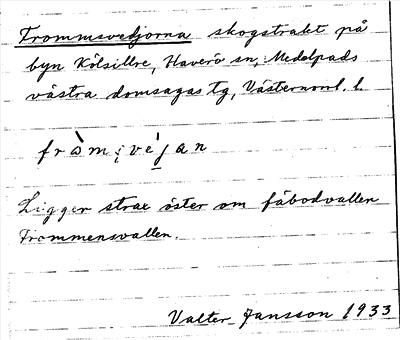 Frommsvedjorna skogstrakt på
byn Kölsillre, Haverö sn, Medelpads
västra domsagas tg, Västernorrl. l.
Ligger strax öster om fäbodvallen
Frommensvallen.
Valter Jansson 1933